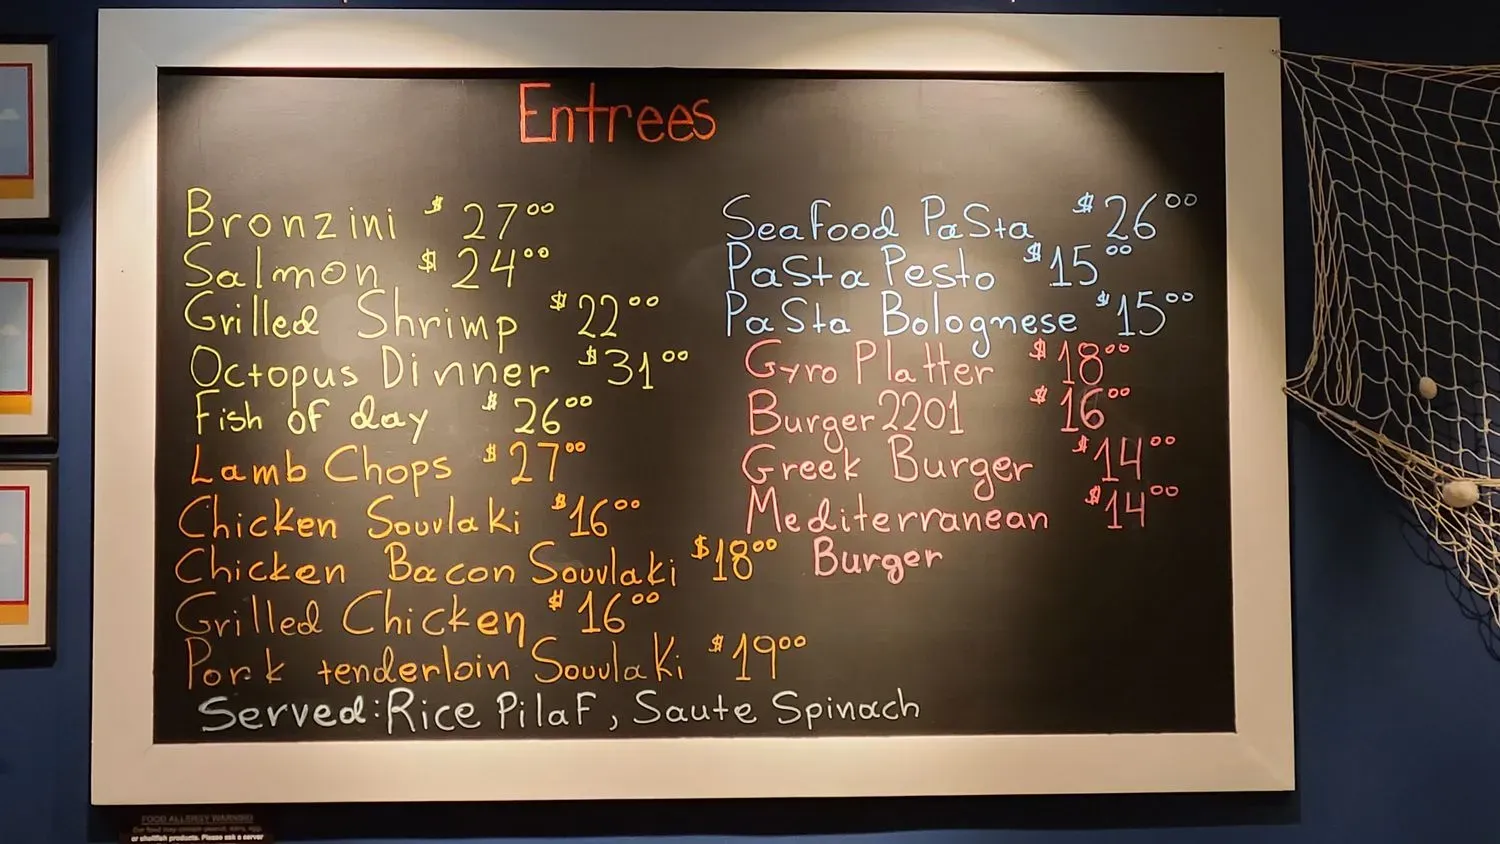 Entrees
Bronzini $ 27⁰⁰
Salmon $ 24⁰⁰
Grilled Shrimp $ 22⁰⁰
Octopus Dinner $ 31⁰⁰
Fish of day $ 26⁰⁰
Lamb Chops $ 27⁰⁰
Chicken Souvlaki $16⁰⁰
Chicken Bacon Souvlaki $18⁰⁰
Grilled Chicken $ 16⁰⁰
Pork tenderloin Souvlaki $19⁰⁰
Served: Rice Pilaf, Saute Spinach
Seafood Pasta $ 26⁰⁰
Pasta Pesto $15⁰⁰
Pasta Bolognese $15⁰⁰
Gyro Platter $ 18⁰⁰
Burger 2201 $ 16⁰⁰
Greek Burger $14⁰⁰
Mediterranean $14⁰⁰
Burger
FOOD ALLERGY WARNING
Our food may contain peanut, dairy, egg,
or shellfish products. Please ask a server